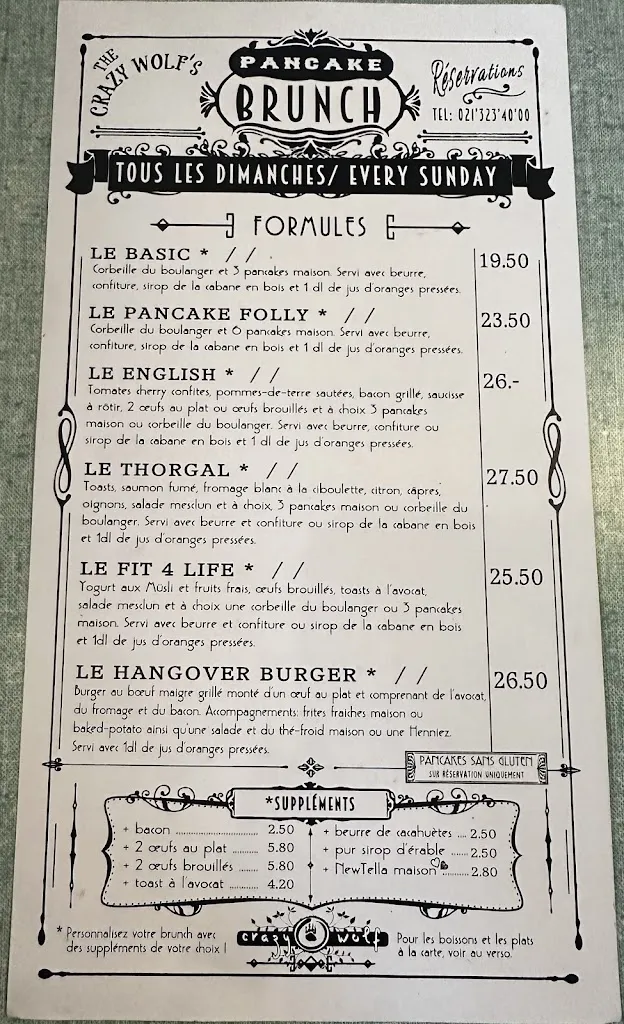 THE CRAZY WOLF'S
PANCAKE
BRUNCH
Réservations
TEL: 021'323'40'00
TOUS LES DIMANCHES/ EVERY SUNDAY
FORMULES
LE BASIC * // 19.50
Corbeille du boulanger et 3 pancakes maison. Servi avec beurre,
confiture, sirop de la cabane en bois et 1 dl de jus d'oranges pressées.
LE PANCAKE FOLLY * // 23.50
Corbeille du boulanger et 6 pancakes maison. Servi avec beurre,
confiture, sirop de la cabane en bois et 1 dl de jus d'oranges pressées.
LE ENGLISH * // 26.-
Tomates cherry confites, pommes-de-terre sautées, bacon grillé, saucisse
à rôtir, 2 œufs au plat ou œufs brouillés et à choix 3 pancakes
maison ou corbeille du boulanger. Servi avec beurre, confiture ou
sirop de la cabane en bois et 1 dl de jus d'oranges pressées.
LE THORGAL * // 27.50
Toasts, saumon fumé, fromage blanc à la ciboulette, citron, câpres,
oignons, salade mesclun et à choix, 3 pancakes maison ou corbeille du
boulanger. Servi avec beurre et confiture ou sirop de la cabane en bois
et 1dl de jus d'oranges pressées.
LE FIT 4 LIFE * // 25.50
Yogurt aux Müsli et fruits frais, œufs brouillés, toasts à l'avocat,
salade mesclun et à choix une corbeille du boulanger ou 3 pancakes
maison. Servi avec beurre et confiture ou sirop de la cabane en bois
et 1dl de jus d'oranges pressées.
LE HANGOVER BURGER * // 26.50
Burger au bœuf maigre grillé monté d'un œuf au plat et comprenant de l'avocat,
du fromage et du bacon. Accompagnements: frites fraîches maison ou
baked-potato ainsi qu'une salade et du thé-froid maison ou une Henniez.
Servi avec 1dl de jus d'oranges pressées.
PANCAKES SANS GLUTEN
SUR RÉSERVATION UNIQUEMENT
*SUPPLÉMENTS
+ bacon ........ 2.50
+ 2 œufs au plat ..... 5.80
+ 2 œufs brouillés ..... 5.80
+ toast à l'avocat ..... 4.20
+ beurre de cacahuètes .... 2.50
+ pur sirop d'érable ..... 2.50
+ NewTella maison ..... 2.80
* Personnalisez votre brunch avec
des suppléments de votre choix !
crazy wolf
Pour les boissons et les plats
à la carte, voir au verso.